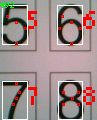 5 5 6 6
7 7 8 8